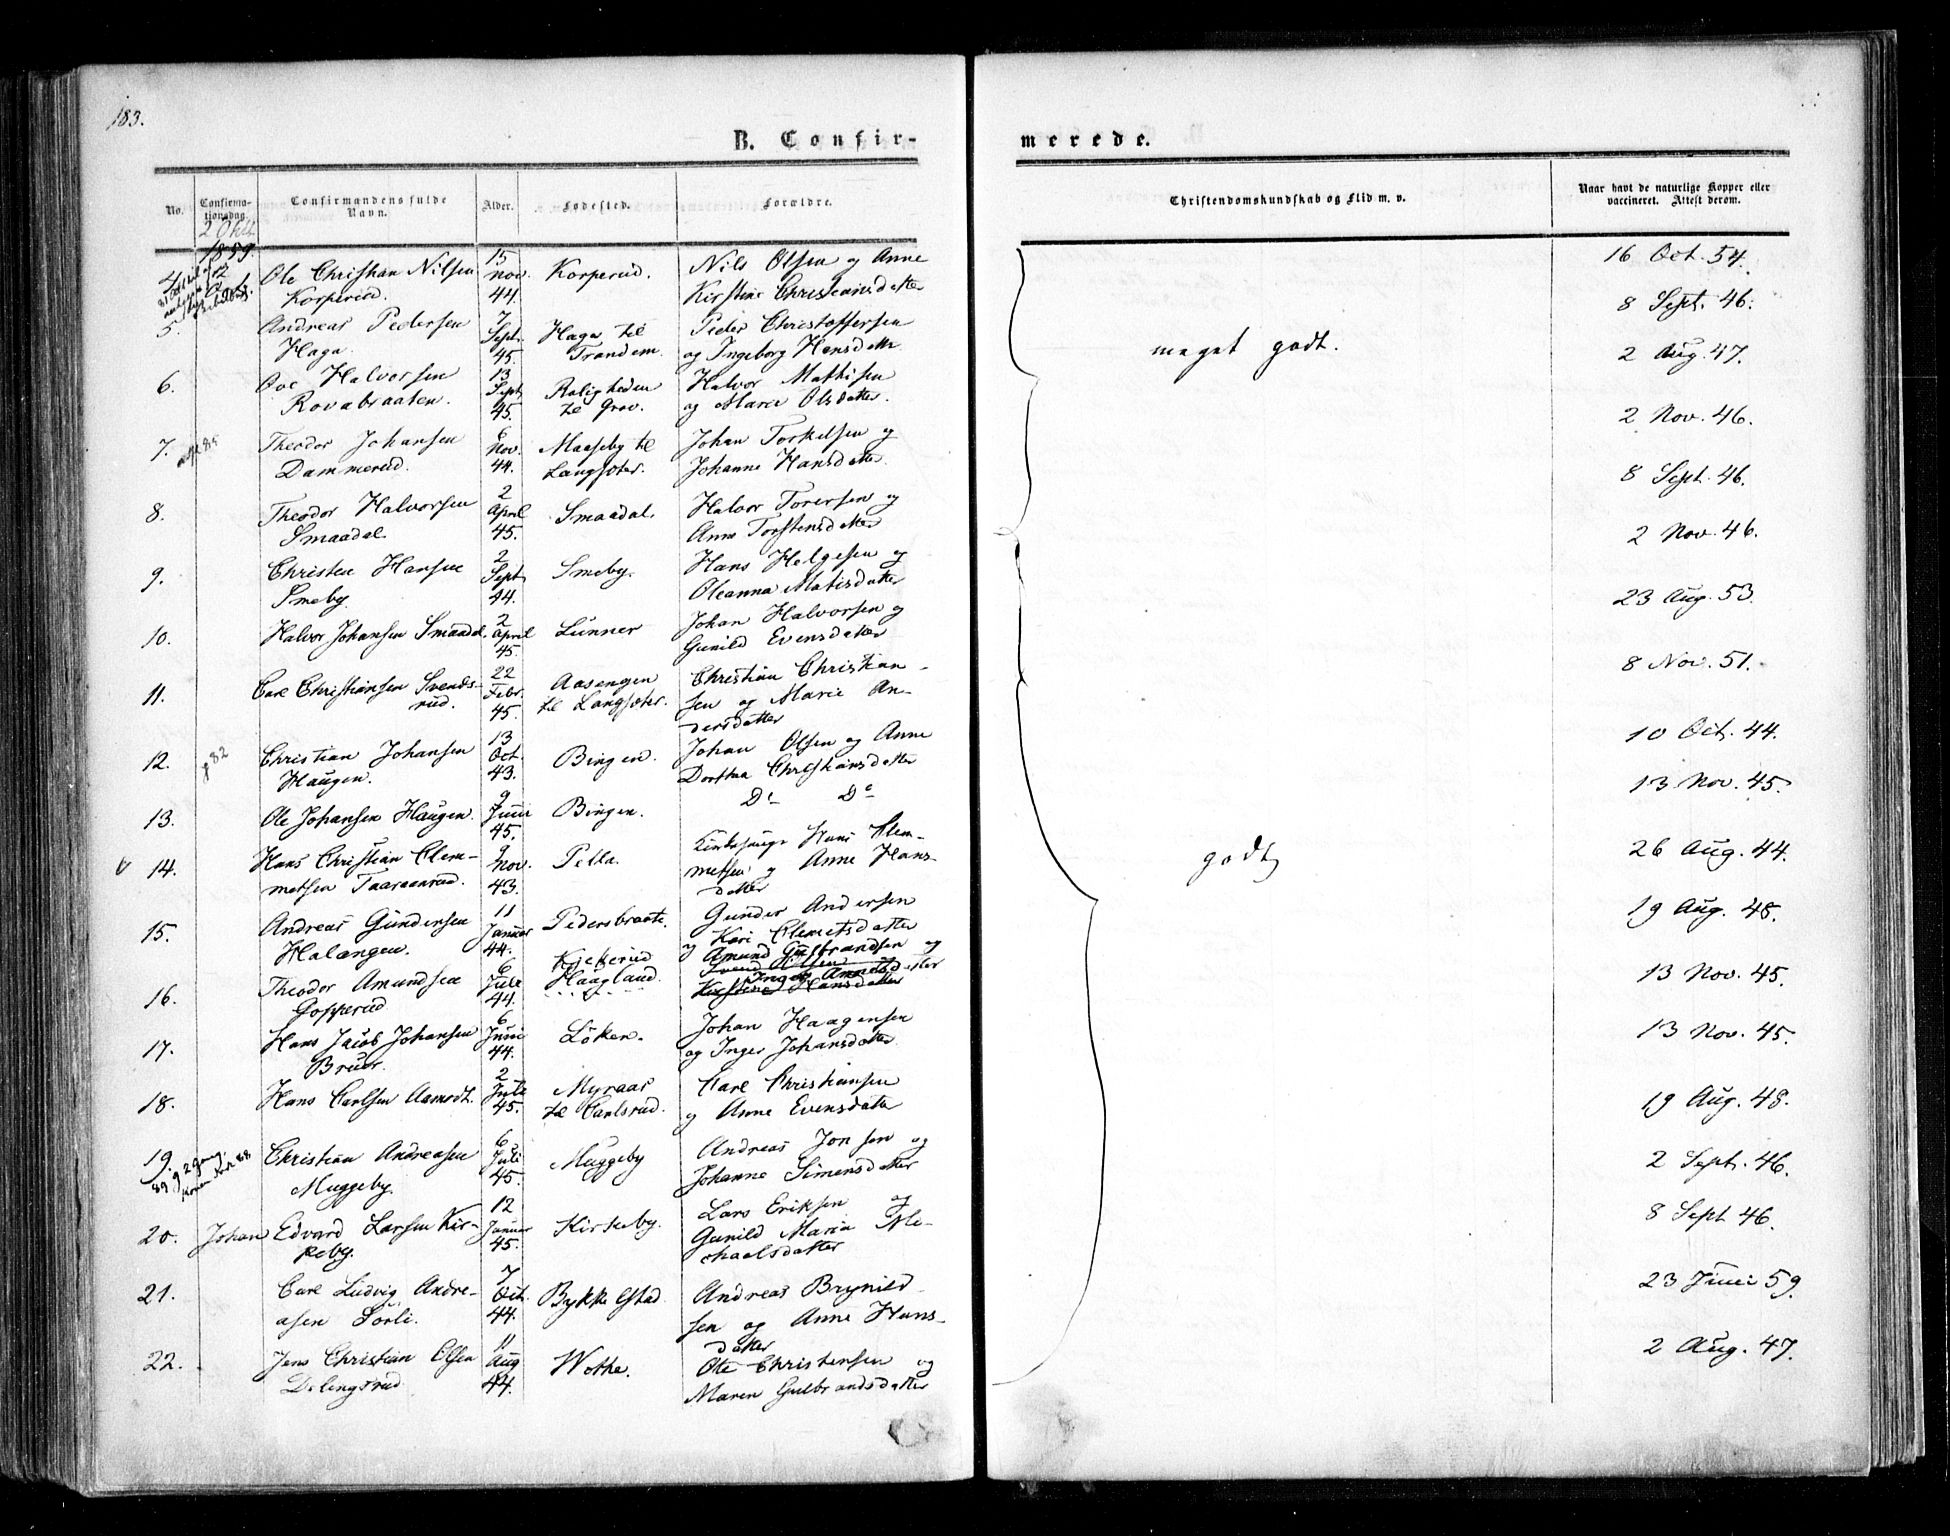 183.
B. Confir-
merede.
No.
Confirma-
tionsdag.
Confirmandens fulde
Navn.
Alder.
Fødested.
Forældre.
Christendomskundskab og Flid m. v.
Naar havt de naturlige Kopper eller
vaccineret. Attest derom.
2 Oktb.
1859.
4.
Ole Christian Nilsen
Korperud.
15
Nov.
44.
Korperud.
Nils Olsen og Anne
Kirstine Christiansdatter
16 Oct. 54.
5.
Andreas Pedersen
Haga.
7
Sept.
45.
Haga til
Trandem.
Peder Christoffersen
og Ingeborg Hansdatter
8 Sept. 46.
6.
Ove Halvorsen
Rovabraaten.
13
Sept.
45.
Roligheden
til Grav.
Halvor Mathisen
og Marie Olsdatter.
2 Aug. 47.
meget godt.
7.
Theodor Johansen
Dammerud.
6
Nov.
44.
Maaseby til
Langsæter.
Johan Torkelsen og
Johanne Hansdatter
2 Nov. 46.
8.
Theodor Halvorsen
Smaadal.
2
April
45.
Smaadal.
Halvor Torersen og
Anne Torstensdatter
8 Sept. 46.
9.
Christen Hansen
Smeby.
2
Sept.
44.
Smeby.
Hans Helgesen og
Oleanna Matisdatter
2 Nov. 46.
10.
Halvor Johansen Smaadal.
2
April
45.
Lunner
Johan Halvorsen og
Gunild Evensdatter
23 Aug. 53.
11.
Carl Christiansen Svends-
rud.
22
Febr.
45.
Aasengen
til Langsæter.
Christian Christian-
sen og Marie An-
dersdatter
8 Nov. 51.
12.
Christian Johansen
Haugen.
13
Oct.
43.
Bingen.
Johan Olsen og Anne
Dorthea Christiansdatter
10 Oct. 44.
13.
Ole Johansen Haugen.
9
Juni
45.
Bingen.
Do Do
13 Nov. 45.
14.
Hans Christian Clem-
metsen Taaraanrud.
9
Nov.
43.
Pella.
Hans Klem-
metsen og Anne Hans-
datter
26 Aug. 44.
godt
15.
Andreas Gundersen
Halangen.
11
Januar
44.
Pedersbraate.
Gunder Andersen
og Kari Clemetsdatter
19 Aug. 48.
16.
Theodor Amundsen
Gopperud
6
Juli
44.
Kjekerud
Haagland.
Amund Gulbrandsen og
Kirstine Hansdatter
13 Nov. 45.
17.
Hans Jacob Johansen
Bruer.
6
Juni
44.
Löken.
Johan Haagensen
og Inger Johansdatter
13 Nov. 45.
18.
Hans Carlsen Aamodt.
2
Juli
45.
Myraas
til Carlsrud.
Carl Christiansen
og Anne Evensdatter
19 Aug. 48.
19.
Christian Andreasen
Muggeby.
6
Juli
45.
Muggeby
Andreas Jonsen og
Johanne Simensdatter
2 Sept. 46.
20.
Johan Edvard Larsen Kir-
keby.
12
Januar
45.
Kirkeby.
Lars Eriksen og
Gunild Maria Mi-
chaelsdatter
8 Sept 46.
21.
Carl Ludvig Andre-
asen Sorli.
7
Oct.
44.
Bykkelstad.
Andreas Brynild-
sen og Anne Hans-
datter
23 Juni 59.
22.
Jens Christian Olsen
Delingsrud
11
Aug
44.
Wothe.
Ole Christensen og
Maren Gulbrandsdatter
2 Aug. 47.